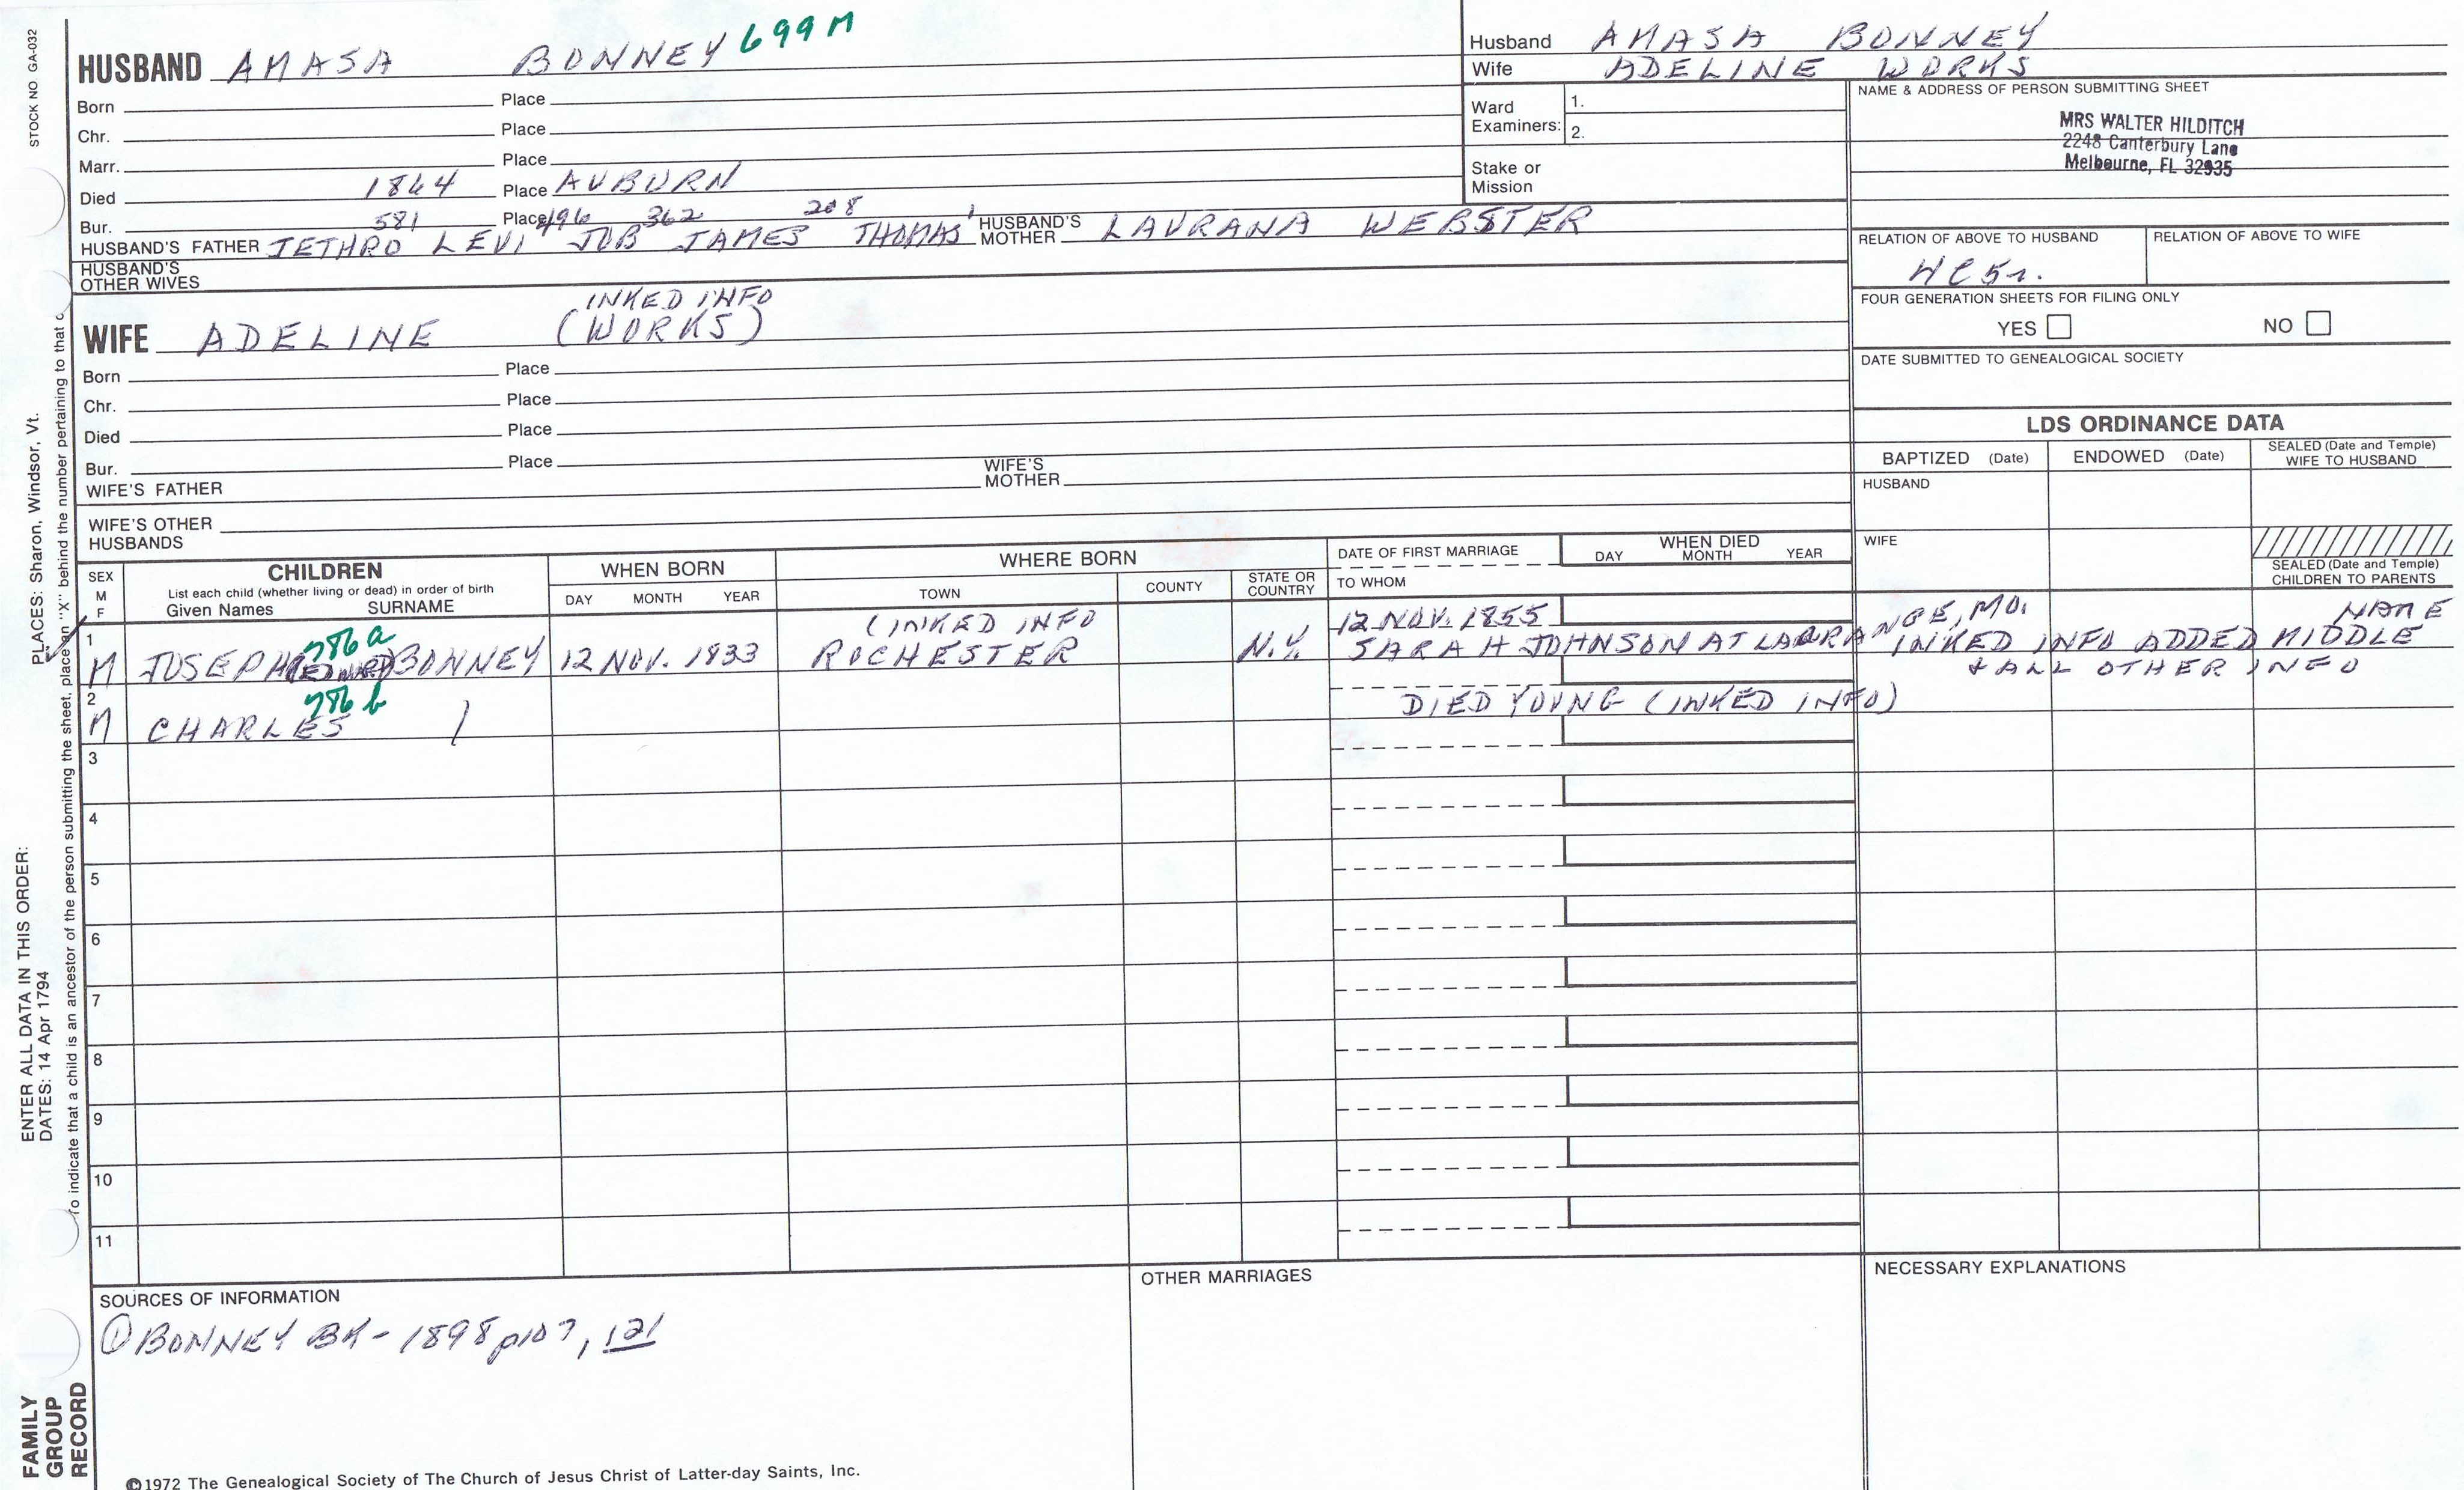 STOCK NO GA-032
HUSBAND AMASA BONNEY 699M
Born Place
Chr. Place
Marr. Place
Died 1864 Place AUBURN
Bur. Place
581 496 362 208 1
HUSBAND'S FATHER JETHRO LEVI JOB JAMES THOMAS HUSBAND'S MOTHER LAURANA WEBSTER
HUSBAND'S OTHER WIVES
INKED INFO
WIFE ADELINE (WORKS)
Born Place
Chr. Place
Died Place
Bur. Place
WIFE'S FATHER WIFE'S MOTHER
WIFE'S OTHER HUSBANDS
Husband AMASA BONNEY
Wife ADELINE WORKS
Ward Examiners: 1.
2.
Stake or Mission
NAME & ADDRESS OF PERSON SUBMITTING SHEET
MRS WALTER HILDITCH
2248 Canterbury Lane
Melbourne, FL 32935
RELATION OF ABOVE TO HUSBAND RELATION OF ABOVE TO WIFE
FOUR GENERATION SHEETS FOR FILING ONLY
YES NO
DATE SUBMITTED TO GENEALOGICAL SOCIETY
LDS ORDINANCE DATA
BAPTIZED (Date) ENDOWED (Date) SEALED (Date and Temple) WIFE TO HUSBAND
HUSBAND
WIFE
SEALED (Date and Temple) CHILDREN TO PARENTS
SEX M F
CHILDREN
List each child (whether living or dead) in order of birth
Given Names SURNAME
WHEN BORN
DAY MONTH YEAR
WHERE BORN
TOWN COUNTY STATE OR COUNTRY
DATE OF FIRST MARRIAGE
TO WHOM
WHEN DIED
DAY MONTH YEAR
1 786a (INKED INFO 12 NOV. 1855 NAME
M JOSEPH (EDWARD) BONNEY 12 NOV. 1833 ROCHESTER N.Y. SARAH JOHNSON AT LAGRANGE, MO. INKED INFO ADDED MIDDLE
& ALL OTHER INFO
2 786b DIED YOUNG (INKED INFO)
M CHARLES /
3
4
5
6
7
8
9
10
11
SOURCES OF INFORMATION
① BONNEY BK - 1898 p107, 121
OTHER MARRIAGES
NECESSARY EXPLANATIONS
ENTER ALL DATA IN THIS ORDER:
DATES: 14 Apr 1794
PLACES: Sharon, Windsor, Vt.
To indicate that a child is an ancestor of the person submitting the sheet, place an "X" behind the number pertaining to that c
FAMILY GROUP RECORD
©1972 The Genealogical Society of The Church of Jesus Christ of Latter-day Saints, Inc.